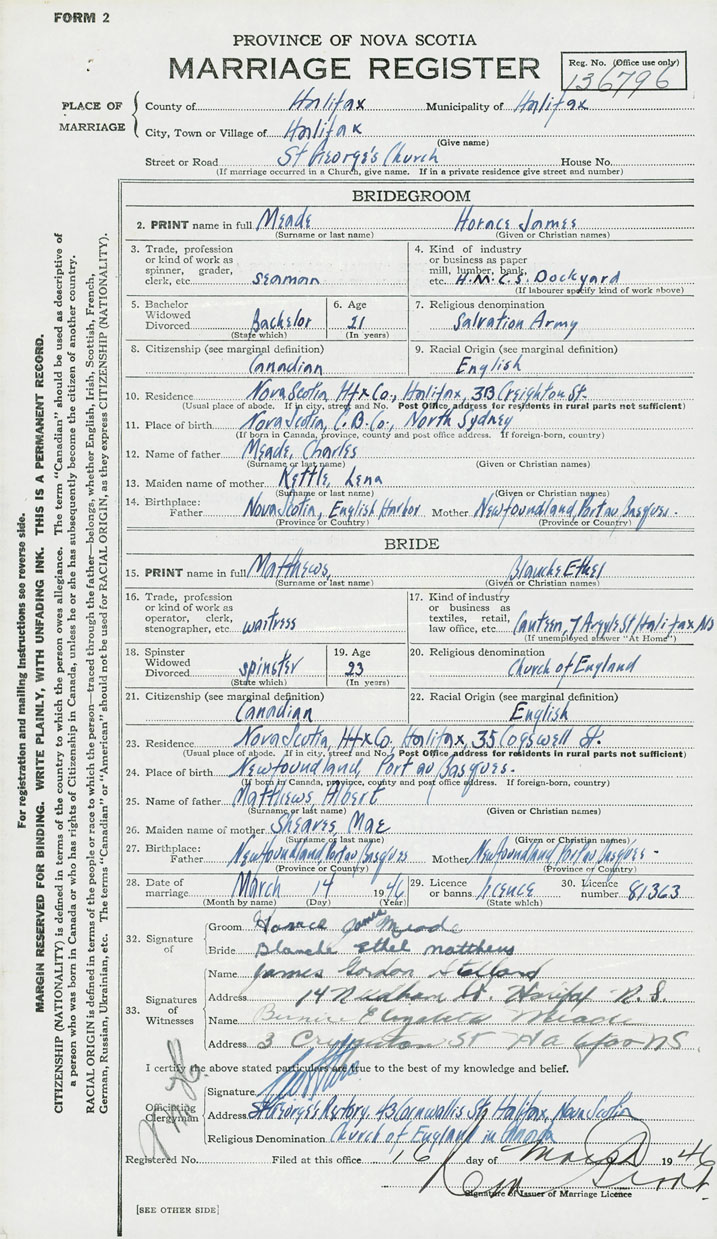 FORM 2
PROVINCE OF NOVA SCOTIA
MARRIAGE REGISTER
Reg. No. (Office use only)
136796
PLACE OF MARRIAGE
County of Halifax Municipality of Halifax
City, Town or Village of Halifax
(Give name)
Street or Road St George's Church House No.
(If marriage occurred in a Church, give name. If in a private residence give street and number)
BRIDEGROOM
2. PRINT name in full Meade Horace James
(Surname or last name) (Given or Christian names)
3. Trade, profession or kind of work as spinner, grader, clerk, etc. seaman
4. Kind of industry or business as paper mill, lumber, bank, etc. H.M.C.S. Dockyard
(If labourer specify kind of work above)
5. Bachelor Widowed Divorced Bachelor
(State which)
6. Age 21
(In years)
7. Religious denomination
Salvation Army
8. Citizenship (see marginal definition)
Canadian
9. Racial Origin (see marginal definition)
English
10. Residence Nova Scotia, Hfx Co., Halifax, 3B Creighton St.
(Usual place of abode. If in city, street and No. Post Office address for residents in rural parts not sufficient)
11. Place of birth Nova Scotia, C.B. Co., North Sydney
(If born in Canada, province, county and post office address. If foreign-born, country)
12. Name of father Meade, Charles
(Surname or last name) (Given or Christian names)
13. Maiden name of mother Kettle, Lena
(Surname or last name) (Given or Christian names)
14. Birthplace: Father Nova Scotia, English Harbor Mother Newfoundland, Port au Basques.
(Province or Country) (Province or Country)
BRIDE
15. PRINT name in full Matthews, Blanche Ethel
(Surname or last name) (Given or Christian names)
16. Trade, profession or kind of work as operator, clerk, stenographer, etc waitress
17. Kind of industry or business as textiles, retail, law office, etc. Canteen, 7 Argyle St Halifax NS
(If unemployed answer "At Home")
18. Spinster Widowed Divorced spinster
(State which)
19. Age 23
(In years)
20. Religious denomination
Church of England
21. Citizenship (see marginal definition)
Canadian
22. Racial Origin (see marginal definition)
English
23. Residence Nova Scotia, Hfx Co. Halifax, 35 Cogswell St.
(Usual place of abode. If in city, street and No. Post Office address for residents in rural parts not sufficient)
24. Place of birth Newfoundland, Port au Basques.
(If born in Canada, province, county and post office address. If foreign-born, country)
25. Name of father Matthews, Albert
(Surname or last name) (Given or Christian names)
26. Maiden name of mother Sheaves, Mae
(Surname or last name) (Given or Christian names)
27. Birthplace: Father Newfoundland, Port au Basques Mother Newfoundland, Port au Basques.
(Province or Country) (Province or Country)
28. Date of marriage March 14 1946
(Month by name) (Day) (Year)
29. Licence or banns licence
(State which)
30. Licence number 81363
32. Signature of
Groom Horace James Meade
Bride Blanche Ethel Matthews
33. Signatures of Witnesses
Name James Gordon
Address 14 Needham St. Halifax N.S.
Name Elizabeth Meade
Address 3 Creighton St Halifax NS
I certify the above stated particulars are true to the best of my knowledge and belief.
Officiating Clergyman
Signature
Address St George's Rectory, 43 Cornwallis St, Halifax, Nova Scotia
Religious Denomination Church of England in Canada
Registered No. Filed at this office 16 day of March 1946
Signature of Issuer of Marriage Licence
[SEE OTHER SIDE]
For registration and mailing instructions see reverse side.
MARGIN RESERVED FOR BINDING. WRITE PLAINLY, WITH UNFADING INK. THIS IS A PERMANENT RECORD.
CITIZENSHIP (NATIONALITY) is defined in terms of the country to which the person owes allegiance. The term "Canadian" should be used as descriptive of
a person who was born in Canada or who has rights of Citizenship in Canada, unless he or she has subsequently become the citizen of another country.
RACIAL ORIGIN is defined in terms of the people or race to which the person—traced through the father—belongs, whether English, Irish, Scottish, French,
German, Russian, Ukrainian, etc. The terms "Canadian" or "American" should not be used for RACIAL ORIGIN, as they express CITIZENSHIP (NATIONALITY).